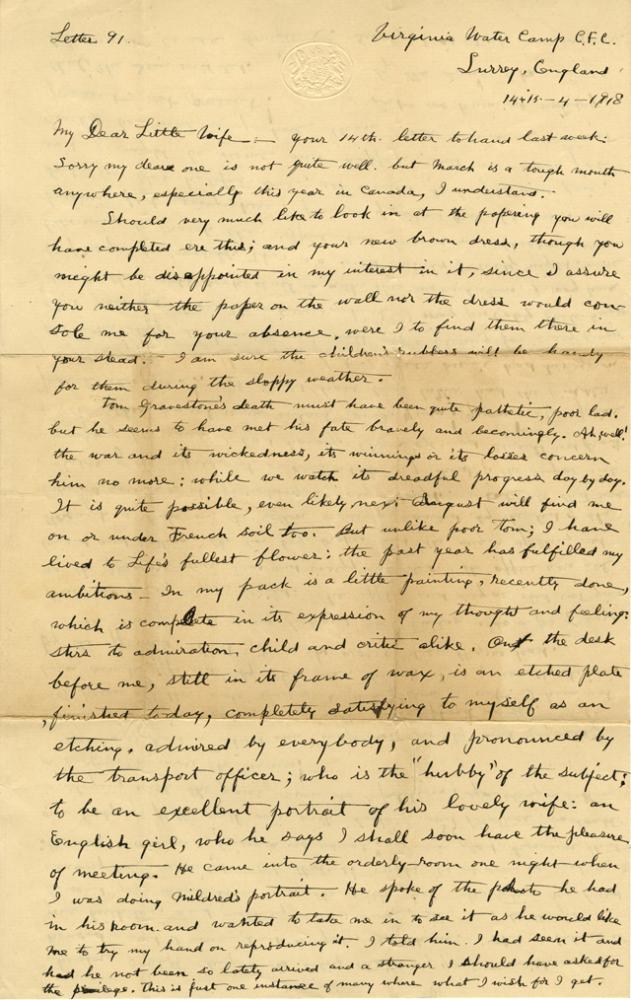 Letter 91.
Virginia Water Camp C.F.C.
Surrey, England
14+15-4-1918
My Dear Little Wife:- your 14th letter to hand last week:
Sorry my dear one is not quite well. but March is a tough month
anywhere, especially this year in Canada, I understand.
Should very much like to look in at the papering you will
have completed ere this; and your new brown dress, though you
might be disappointed in my interest in it, since I assure
you neither the paper on the wall nor the dress would con-
sole me for your absence, were I to find them there in
your stead.- I am sure the children's rubbers will be handy
for them during the sloppy weather.
Tom Gravestone's death must have been quite pathetic, poor lad.
but he seems to have met his fate bravely and becomingly. Ah, well!
the war and its wickedness, its winnings or its losses concern
him no more: while we watch its dreadful progress day by day.
It is quite possible, even likely next August will find me
on or under French soil too. But unlike poor Tom; I have
lived to Life's fullest flower: the past year has fulfilled my
ambitions- In my pack is a little painting, recently done,
which is complete in its expression of my thought and feeling:
stirs to admiration, child and critic alike. On the desk
before me, still in its frame of wax, is an etched plate
finished today, completely satisfying to myself as an
etching, admired by everybody, and pronounced by
the transport officer; who is the "hubby" of the subject;
to be an excellent portrait of his lovely wife: an
English girl, who he says I shall soon have the pleasure
of meeting. He came into the orderly-room one night when
I was doing Mildred's portrait. He spoke of the photo he had
in his room and wanted to take me in to see it as he would like
me to try my hand on reproducing it. I told him I had seen it and
had he not been so lately arrived and a stranger I should have asked for
the privilege. This is just one instance of many where what I wish for I get.